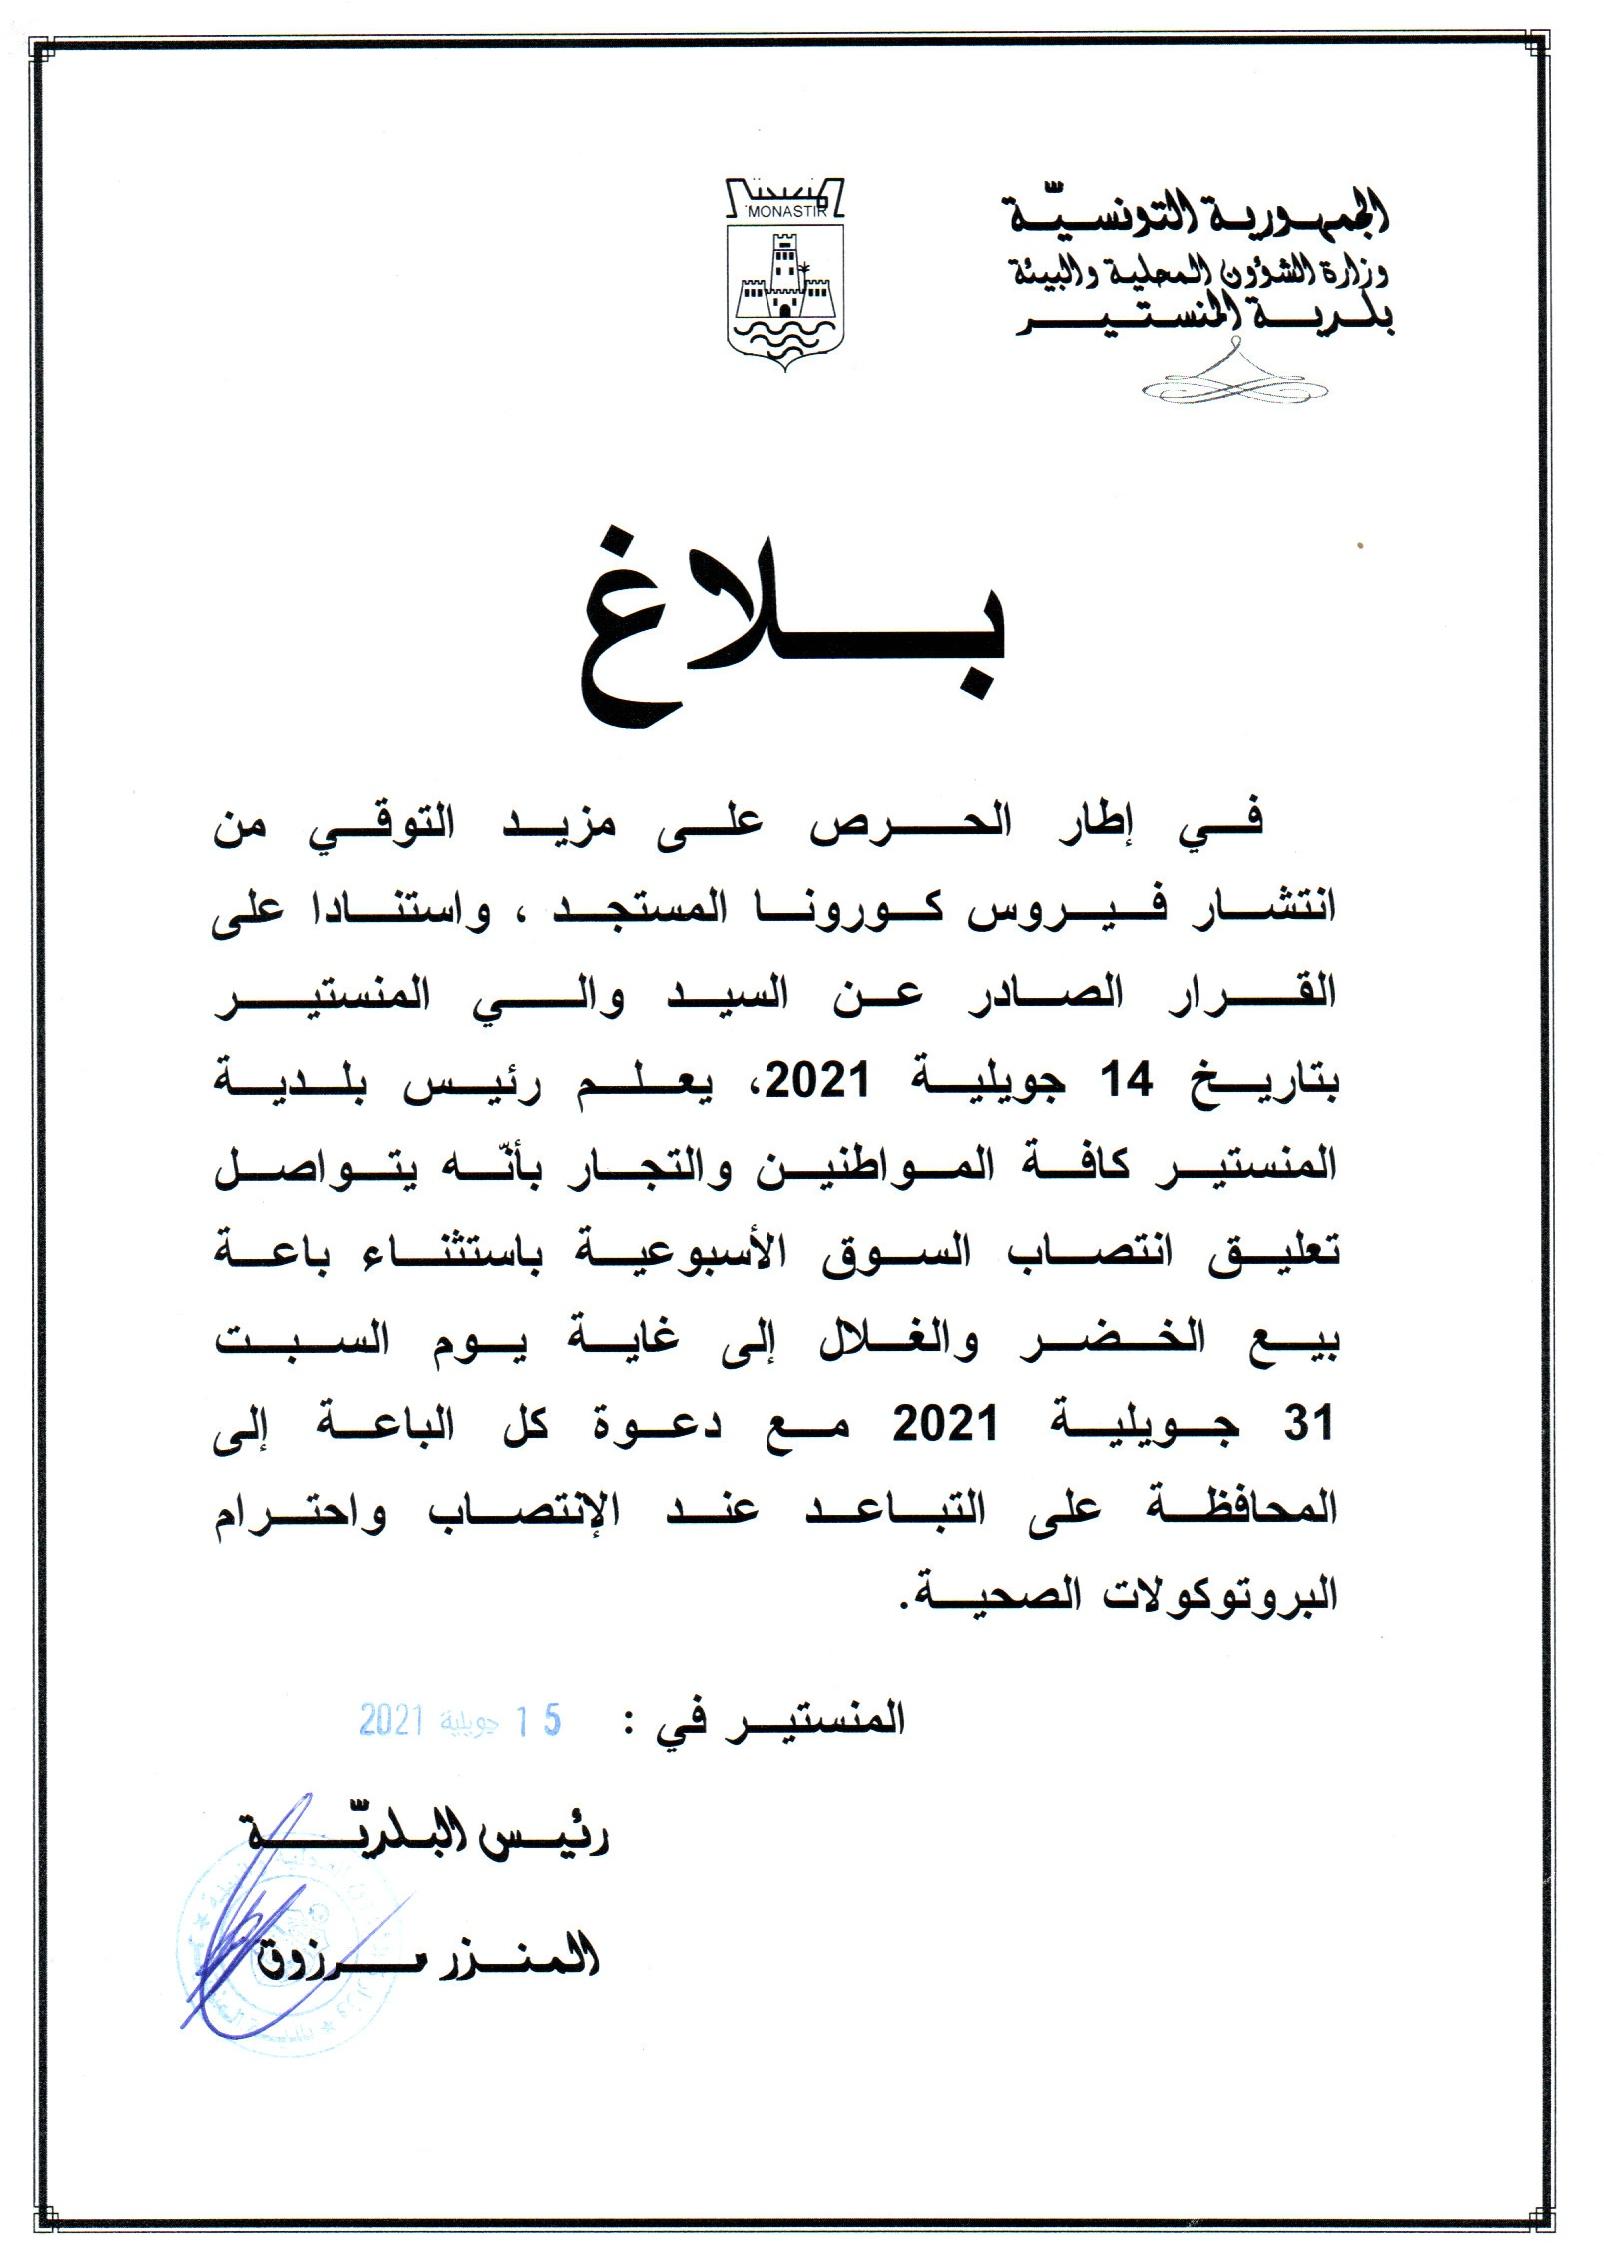 الجمهورية التونسيّة
وزارة الشؤون المحلية والبيئة
بلدية المنستير
منستير
MONASTIR
بلاغ
في إطار الحرص على مزيد التوقي من
انتشار فيروس كورونا المستجد ، واستنادا على
القرار الصادر عن السيد والي المنستير
بتاريخ 14 جويلية 2021، يعلم رئيس بلدية
المنستير كافة المواطنين والتجار بأنّه يتواصل
تعليق انتصاب السوق الأسبوعية باستثناء باعة
بيع الخضر والغلال إلى غاية يوم السبت
31 جويلية 2021 مع دعوة كل الباعة إلى
المحافظة على التباعد عند الإنتصاب واحترام
البروتوكولات الصحية.
المنستير في : 15 جويلية 2021
رئيس البلديّة
المنذر مرزوق